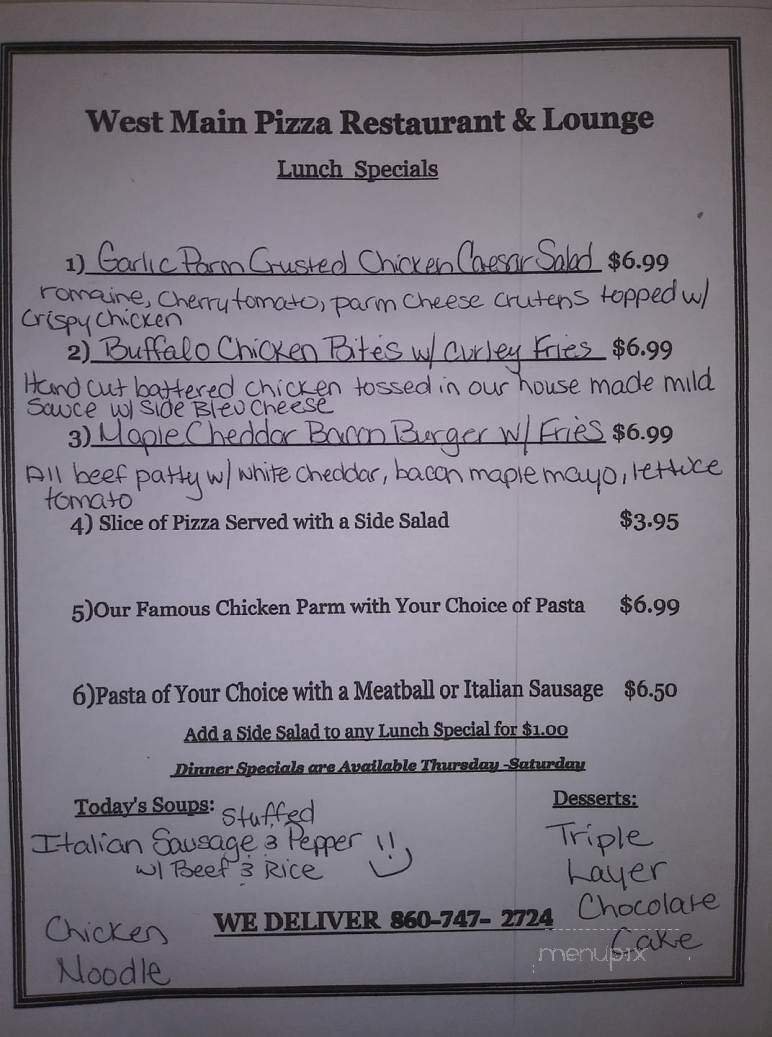 West Main Pizza Restaurant & Lounge
Lunch Specials
1) Garlic Parm Crusted Chicken Caesar Salad $6.99
romaine, Cherry tomato, parm cheese crutens topped w/
Crispy Chicken
2) Buffalo Chicken Bites w/ Curley Fries $6.99
Hand cut battered chicken tossed in our house made mild
Sauce w/ Side Bleu Cheese
3) Maple Cheddar Bacon Burger w/ Fries $6.99
All beef patty w/ white cheddar, bacon maple mayo, lettuce
tomato
4) Slice of Pizza Served with a Side Salad $3.95
5)Our Famous Chicken Parm with Your Choice of Pasta $6.99
6)Pasta of Your Choice with a Meatball or Italian Sausage $6.50
Add a Side Salad to any Lunch Special for $1.00
Dinner Specials are Available Thursday -Saturday
Today's Soups: Stuffed
Italian Sausage & Pepper !!
w/ Beef & Rice
Chicken
Noodle
Desserts:
Triple
Layer
Chocolate
Cake
WE DELIVER 860-747- 2724
menupix